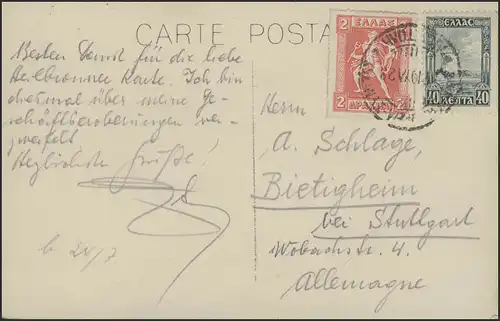 CARTE POSTA
Besten Dank für die liebe
Heilbronner Karte. Ich bin
diesmal über meine Ge-
schäftseroberungen ver-
zweifelt
Herzlichste Grüße!
20/7
2 ΕΛΛΑΣ
2
ΕΛΛΑΣ
40 ΛΕΠΤΑ 40
Herrn
A. Schlage,
Bietigheim
bei Stuttgart
Wobachstr. 4.
Allemagne